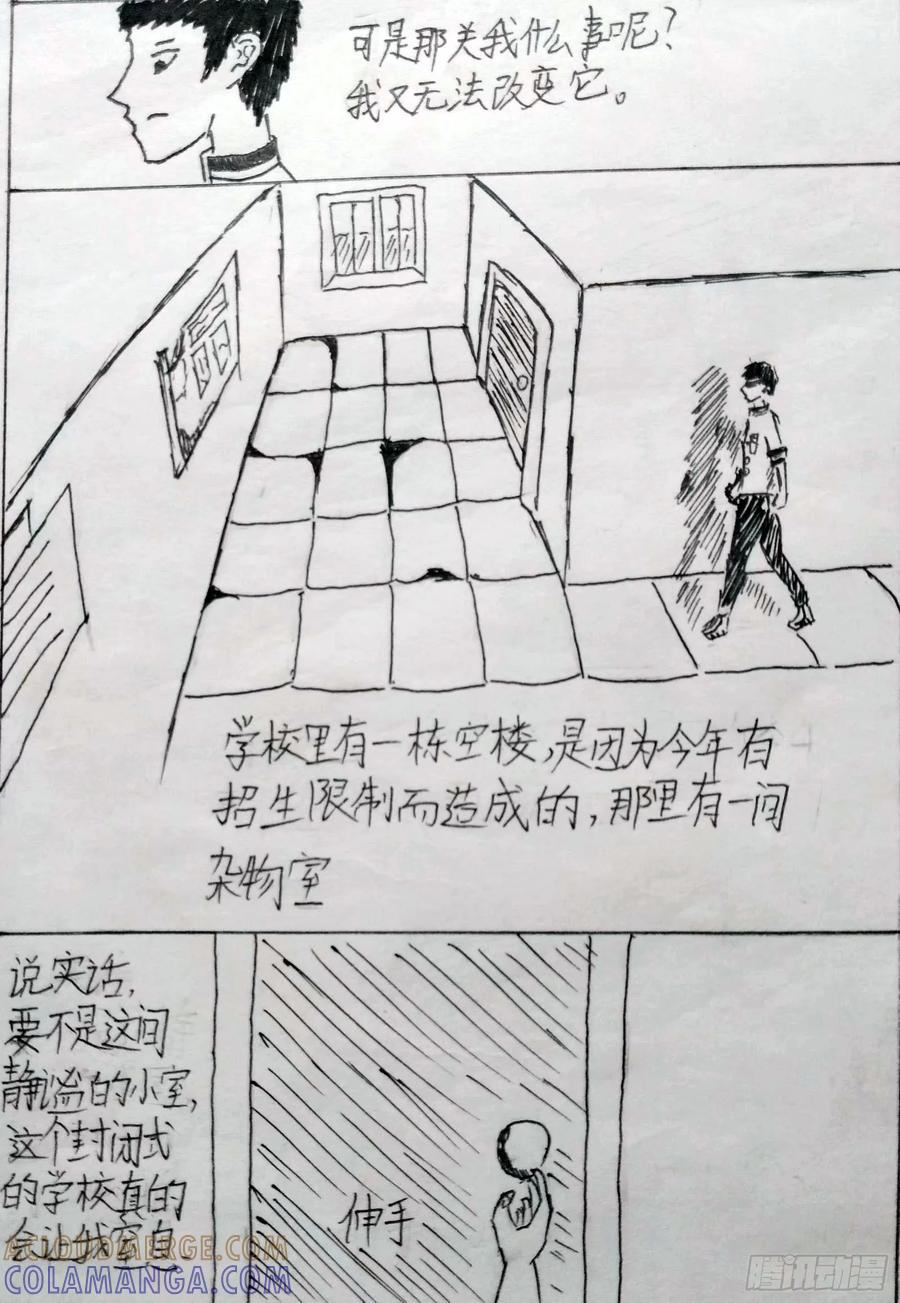 可是那关我什么事呢?
我又无法改变它。
学校里有一栋空楼,是因为今年有
招生限制而造成的,那里有一间
杂物室
说实话,
要不是这间
静谧的小室,
这个封闭式
的学校真的
会让我窒息
伸手
ACLOUDMERGE.COM
COLAMANGA.COM
腾讯动漫